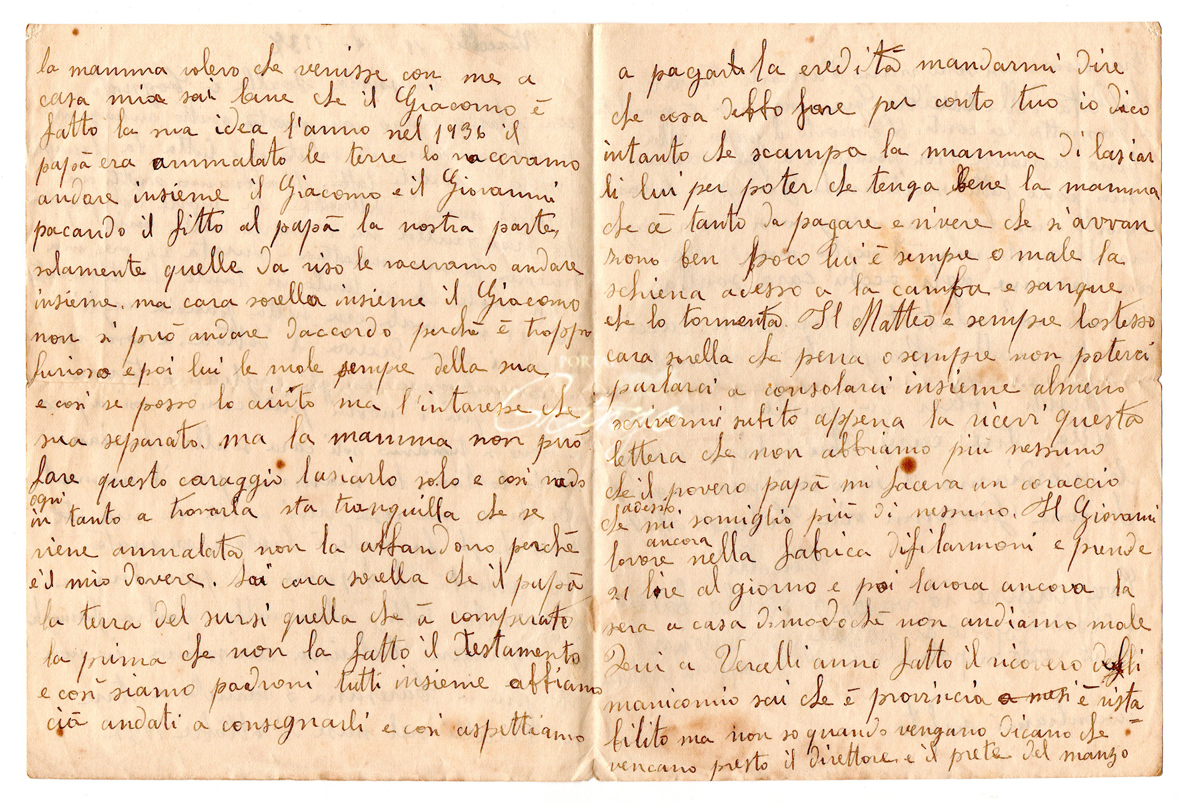 la mamma volevo che venisse con me a
casa mia sai bane che il Giacomo è
fatto la sua idea l'anno nel 1936 il
papà era ammalato le terre lo vacevamo
andare insieme il Giacomo e il Giovanni
pacando il fitto al papà la nostra parte,
solamente quelle da riso le vacevamo andare
insieme. ma cara sorella insieme il Giacomo
non si può andare daccordo perchè è troppo
furioso e poi lui le vuole sempre della sua
e così se posso lo aiuto ma l'intaresse che
sua separato. ma la mamma non può
fare questo caraggio lasiarlo solo e così vado
ogni
in tanto a trovarla sta tranquilla che se
viene ammalata non la abbandono perchè
è il mio dovere. Sai cara sorella che il papà
la terra del sursi quella che à comperato
la prima che non la fatto il Testamento
e così siamo padroni tutti insieme abbiamo
cià andati a consegnarli e così aspettiamo
a pagar la eredità mandarmi dire
che cosa debbo fare per conto tuo io dico
intanto che scampa la mamma di lasiar
li lui per poter che tenga bene la mamma
che à tanto da pagare e vivere che si avvan
zono ben poco lui è sempre o male la
schiena adesso a la camba e sangue
che lo tormenta. Il Matteo e sempre lostesso
cara sorella che pena o sempre non poterci
parlarci a consolarci insieme almeno
scrivermi subito appena la ricevi questa
lettera che non abbiamo più nessuno
che il povero papà mi faceva un coraccio
adesso
che mi somiglio più di nessuno. Il Giovanni
ancora
lavore nella fabrica difilarmoni e prende
21 lire al giorno e poi lavora ancora la
sera a casa dimodochè non andiamo male
Zeni a Vercelli anno fatto il ricovero degli
manicomio sai che è provincia è ista=
bilito ma non so quando vengano dicano che
vencano presto il direttore e il prete del manzo